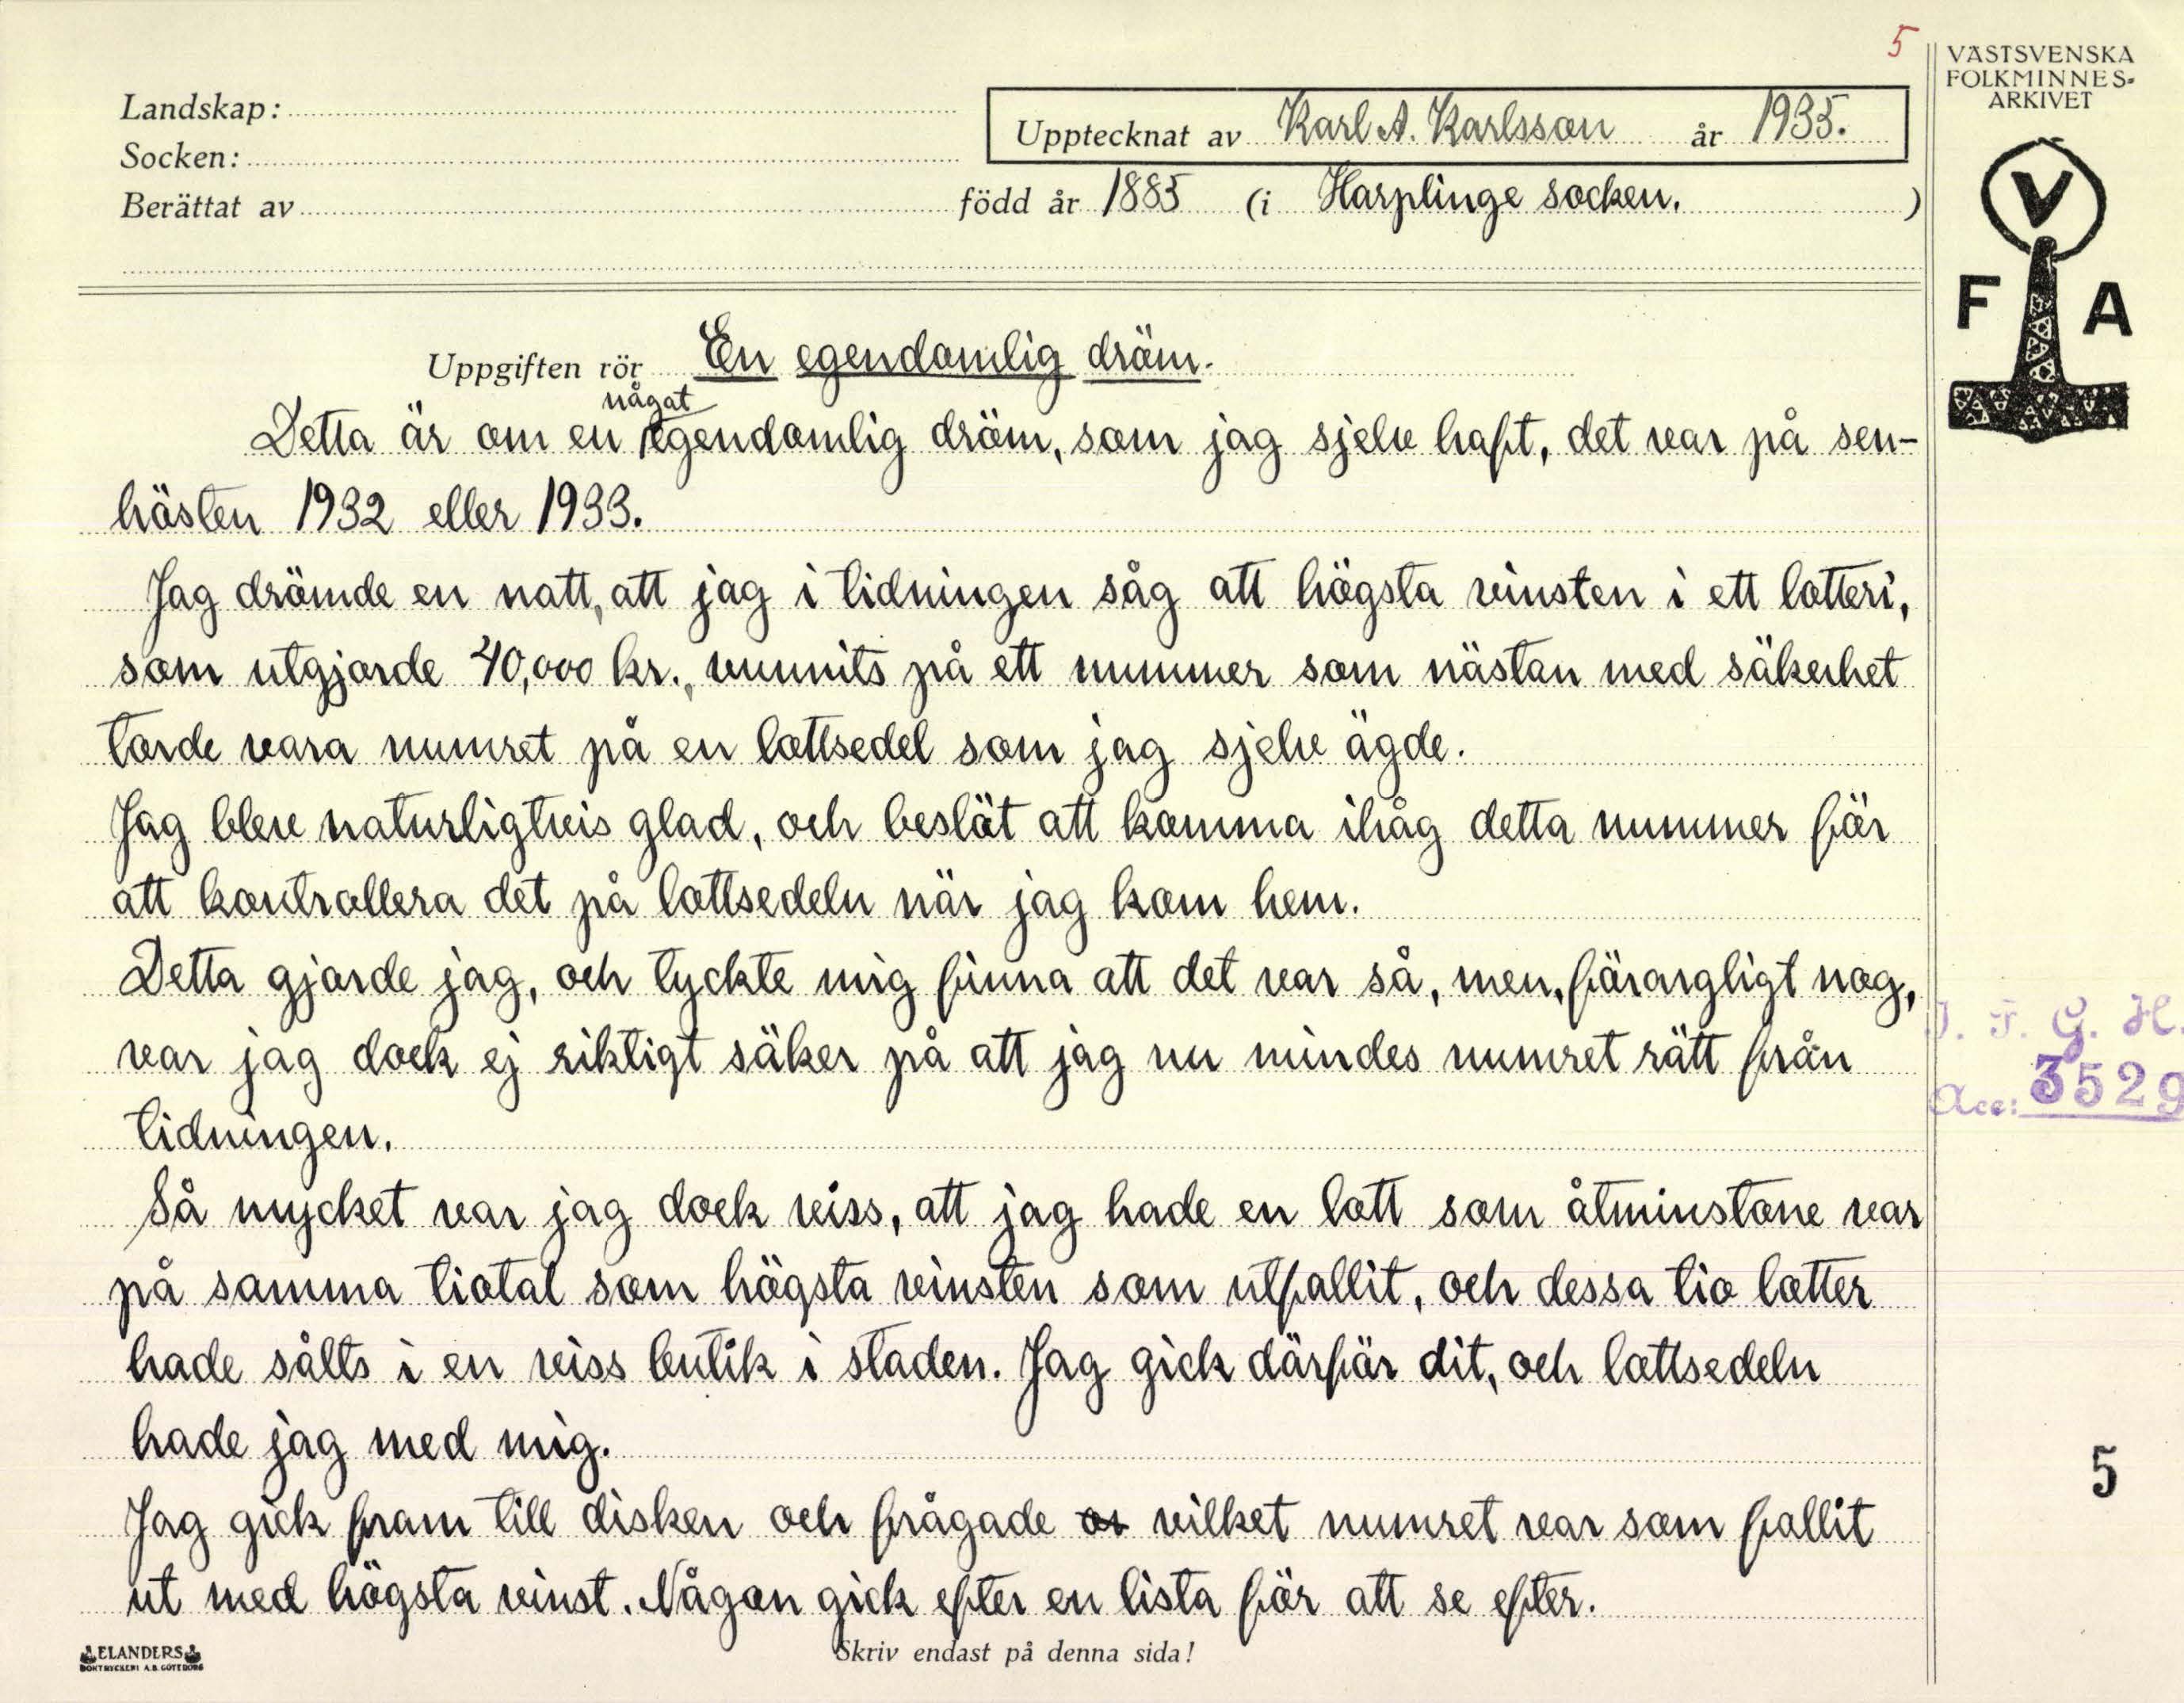 5
VÄSTSVENSKA
FOLKMINNES-
ARKIVET
Landskap:
Upptecknat av Karl A. Karlsson år 1935.
Socken:
Berättat av född år 1885 (i Harplinge socken. )
V
F A
Uppgiften rör En egendomlig dröm.
något
Detta är om en egendomlig dröm, som jag sjelv haft, det var på sen-
hösten 1932 eller 1933.
Jag drömde en natt, att jag i tidningen såg att högsta vinsten i ett lotteri,
som utgjorde 40,000 kr., vunnits på ett nummer som nästan med säkerhet
torde vara numret på en lottsedel som jag sjelv ägde.
Jag blev naturligtvis glad, och beslöt att komma ihåg detta nummer för
att kontrollera det på lottsedeln när jag kom hem.
Detta gjorde jag, och tyckte mig finna att det var så, men, förargligt nog,
var jag dock ej riktigt säker på att jag nu mindes numret rätt från
tidningen.
Så mycket var jag dock viss, att jag hade en lott som åtminstone var
på samma tiotal som högsta vinsten som utfallit, och dessa tio lotter
hade sålts i en viss butik i staden. Jag gick därför dit, och lottsedeln
hade jag med mig.
Jag gick fram till disken och frågade vilket numret var som fallit
ut med högsta vinst. Någon gick efter en lista för att se efter.
I. F. G. H.
Acc: 3529
5
ELANDERS
BOKTRYCKERI A.B. GÖTEBORG
Skriv endast på denna sida!